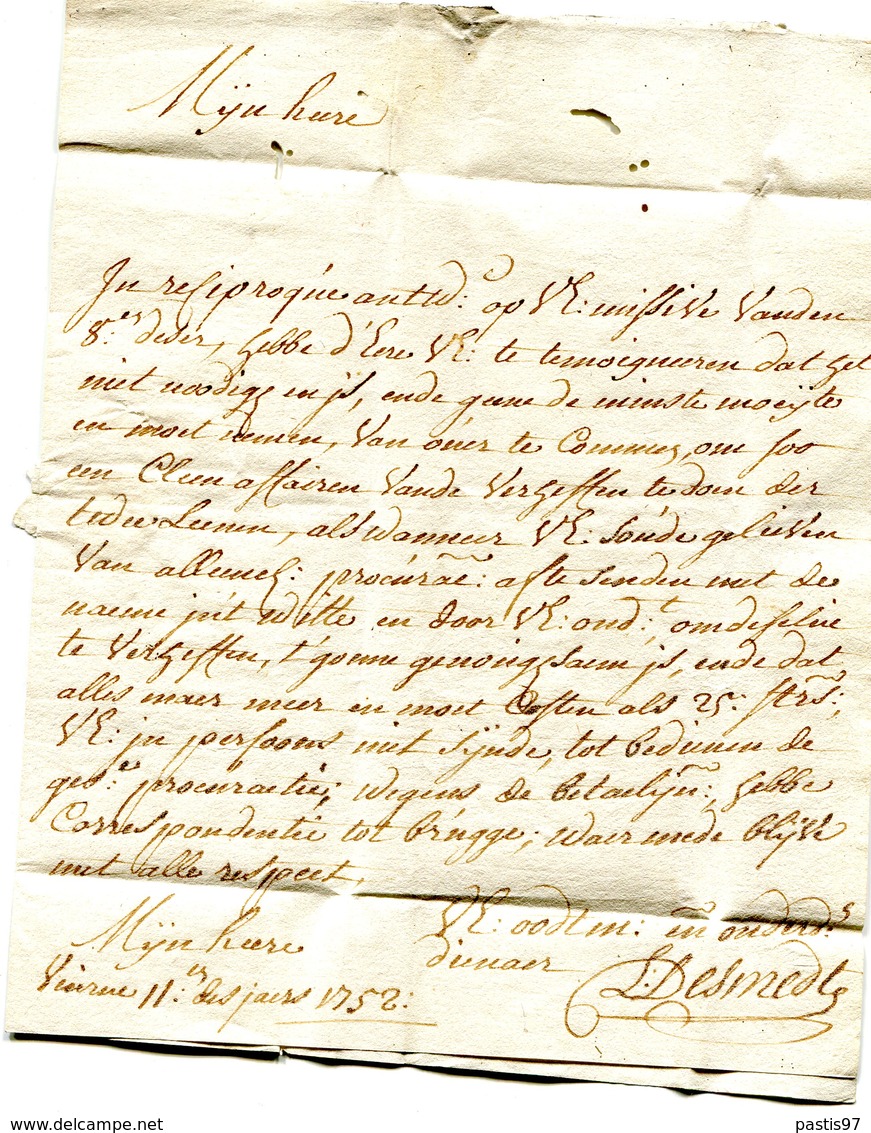 Mijn heere
In resiproqúe antw: op VE: missive vanden
8.er deser, hebbe d'Eere VE: te temoigneeren dat het
niet noodigh en js, ende geene de minste moeÿte
en moet nemen, van over te Commen, om soo
een Cleen affairen vande verheffen te doen der
leenen, als wanneer VE: soúde gelieven
van alleenel: procúrãe: af te senden met de
naeme in't witte en door VE: ondt:, om deselve
te verheffen, t'gonne genoúghsaem js, ende dat
alles maer meer en moet Costen als 25: st̃rs:,
VE: jn persoone niet sÿnde, tot bedienen de
ges.e procuraetie; wegens de betaelijn:, hebbe
Correspondentie tot brúgge; waer mede blÿve
met alle respect,
Mijn heere
VE: oodtm: en onderd:e
dienaer
L: Desmedt
Veúrne 11:en des jaers 1752:
delcampe.net
pastis97